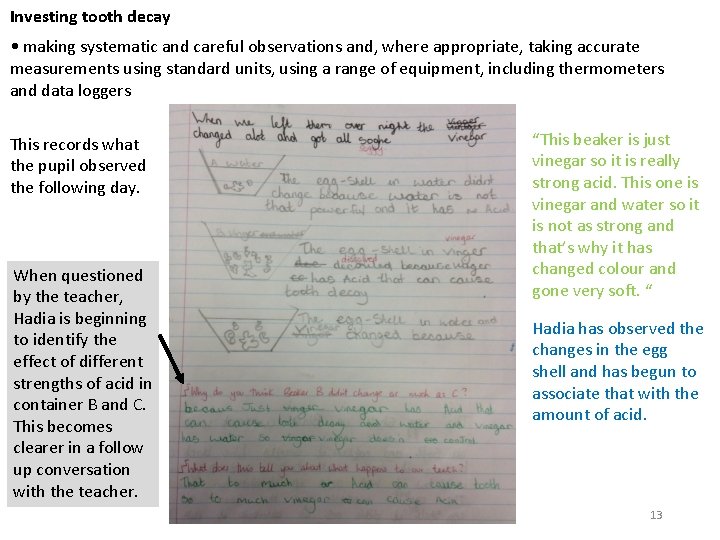 Investing tooth decay
• making systematic and careful observations and, where appropriate, taking accurate
measurements using standard units, using a range of equipment, including thermometers
and data loggers
This records what
the pupil observed
the following day.
When questioned
by the teacher,
Hadia is beginning
to identify the
effect of different
strengths of acid in
container B and C.
This becomes
clearer in a follow
up conversation
with the teacher.
When we left them over night the vinegar
changed alot and got all soghe
soggy
A water
The egg-shell in water didnt
change because water is not
that powerful and it has no Acid
B
vinegar
The egg shell in vinger
dissolved
because
has Acid that can cause
tooth decay
The egg-shell in water and
vinegar changed because
Why do you think Beaker B didnt change as much as C?
becaus Just vinger vinegar has Acid that
can cause tooth decay and water and vinegar
has water so vinegar
What does this tell you about what happen to our teeth?
That to much or Acid can cause tooth
So to much vinegar can cause Acid
“This beaker is just
vinegar so it is really
strong acid. This one is
vinegar and water so it
is not as strong and
that’s why it has
changed colour and
gone very soft. “
Hadia has observed the
changes in the egg
shell and has begun to
associate that with the
amount of acid.
13